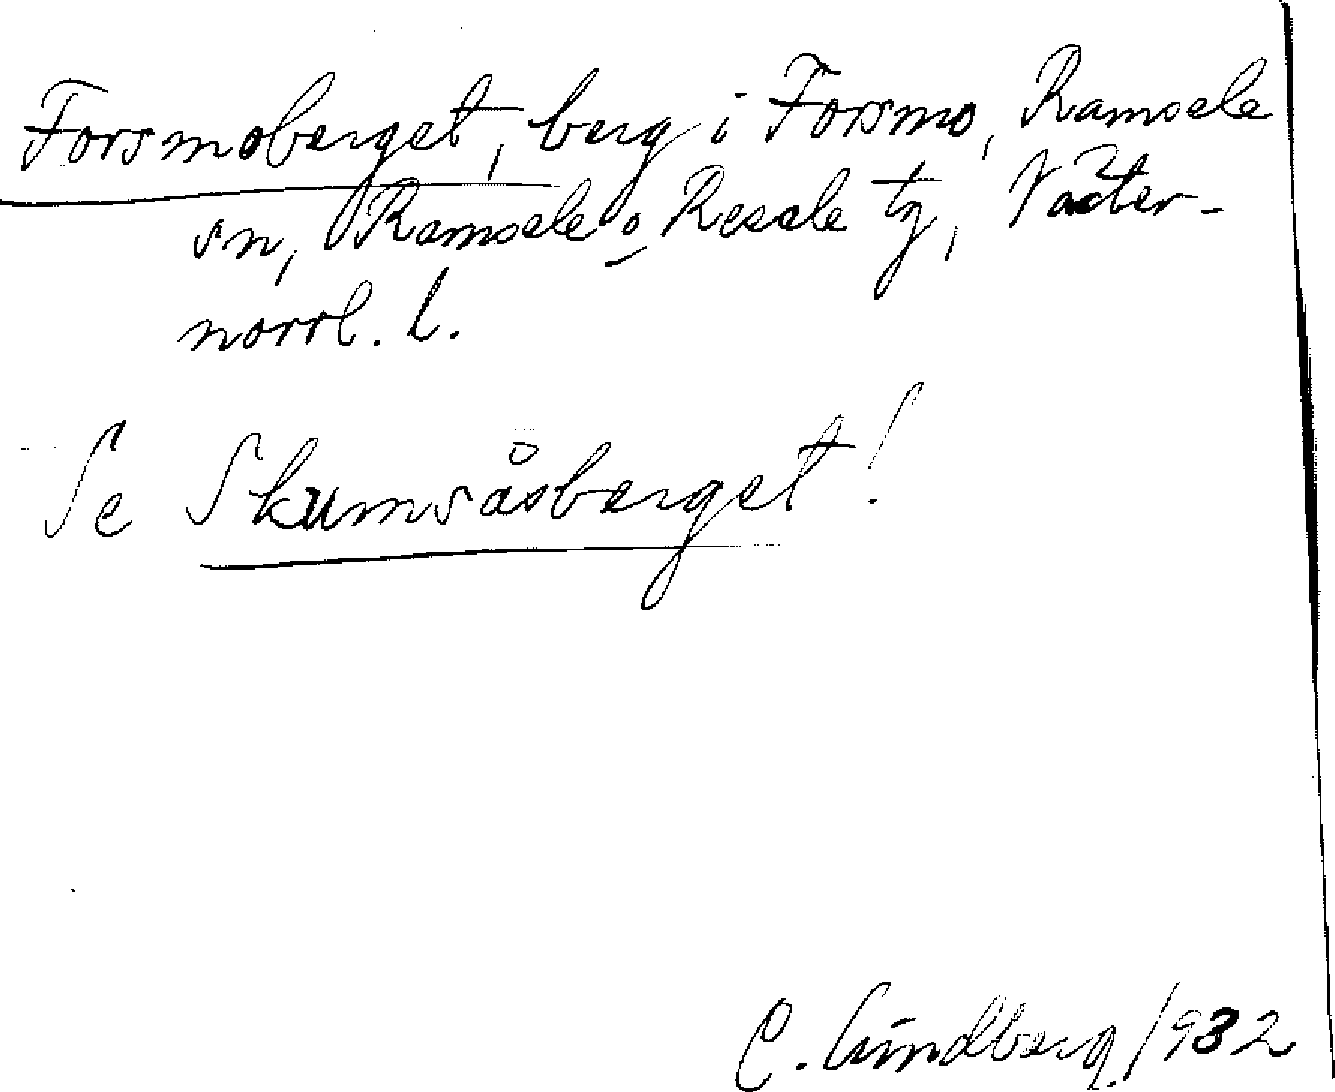 Forsmoberget, berg i Forsmo, Ramsele
sn, Ramsele o Resele tg, Väster-
norrl. l.
Se Skumsåsberget!
C. Lindberg 1932